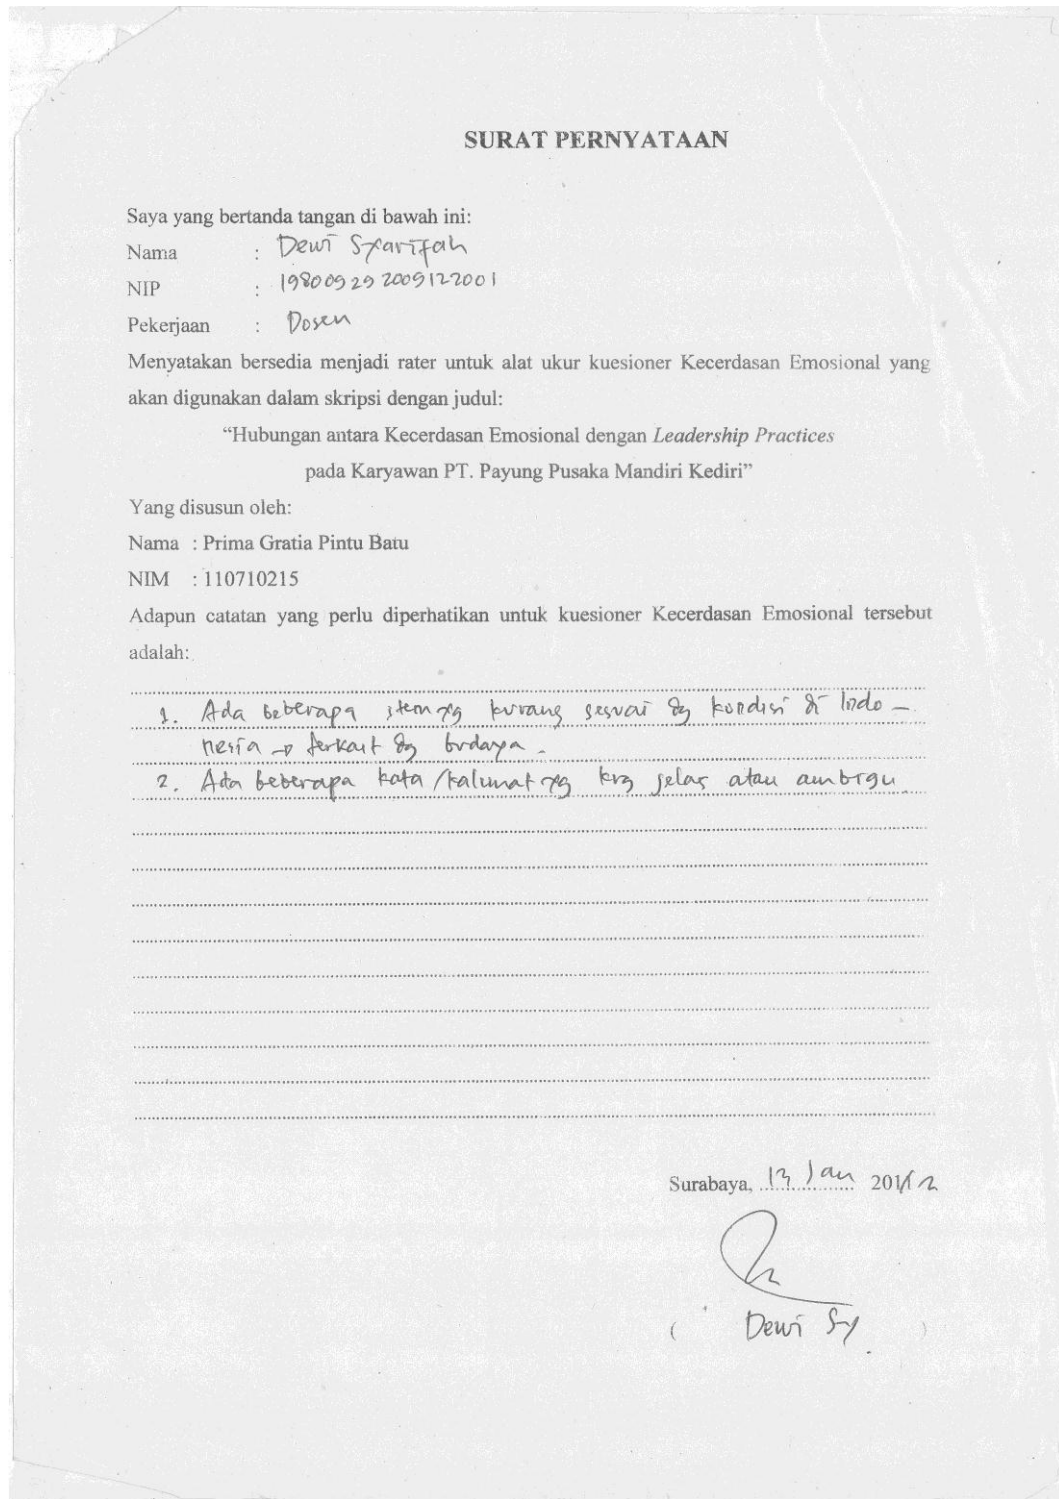 SURAT PERNYATAAN
Saya yang bertanda tangan di bawah ini:
Nama : Dewi Syarifah
NIP : 198009292009122001
Pekerjaan : Dosen
Menyatakan bersedia menjadi rater untuk alat ukur kuesioner Kecerdasan Emosional yang
akan digunakan dalam skripsi dengan judul:
“Hubungan antara Kecerdasan Emosional dengan Leadership Practices
pada Karyawan PT. Payung Pusaka Mandiri Kediri”
Yang disusun oleh:
Nama : Prima Gratia Pintu Batu
NIM : 110710215
Adapun catatan yang perlu diperhatikan untuk kuesioner Kecerdasan Emosional tersebut
adalah:
1. Ada beberapa item yg kurang sesuai dg kondisi di Indo-
nesia → terkait dg budaya.
2. Ada beberapa kata/kalimat yg krg jelas atau ambigu
Surabaya, 13 Jan 2012
( Dewi Sy )